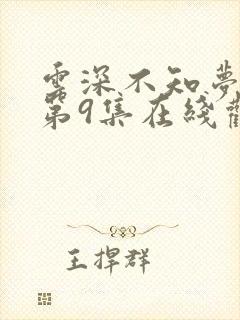 雲深不知夢
第9集在綫觀
王捍群